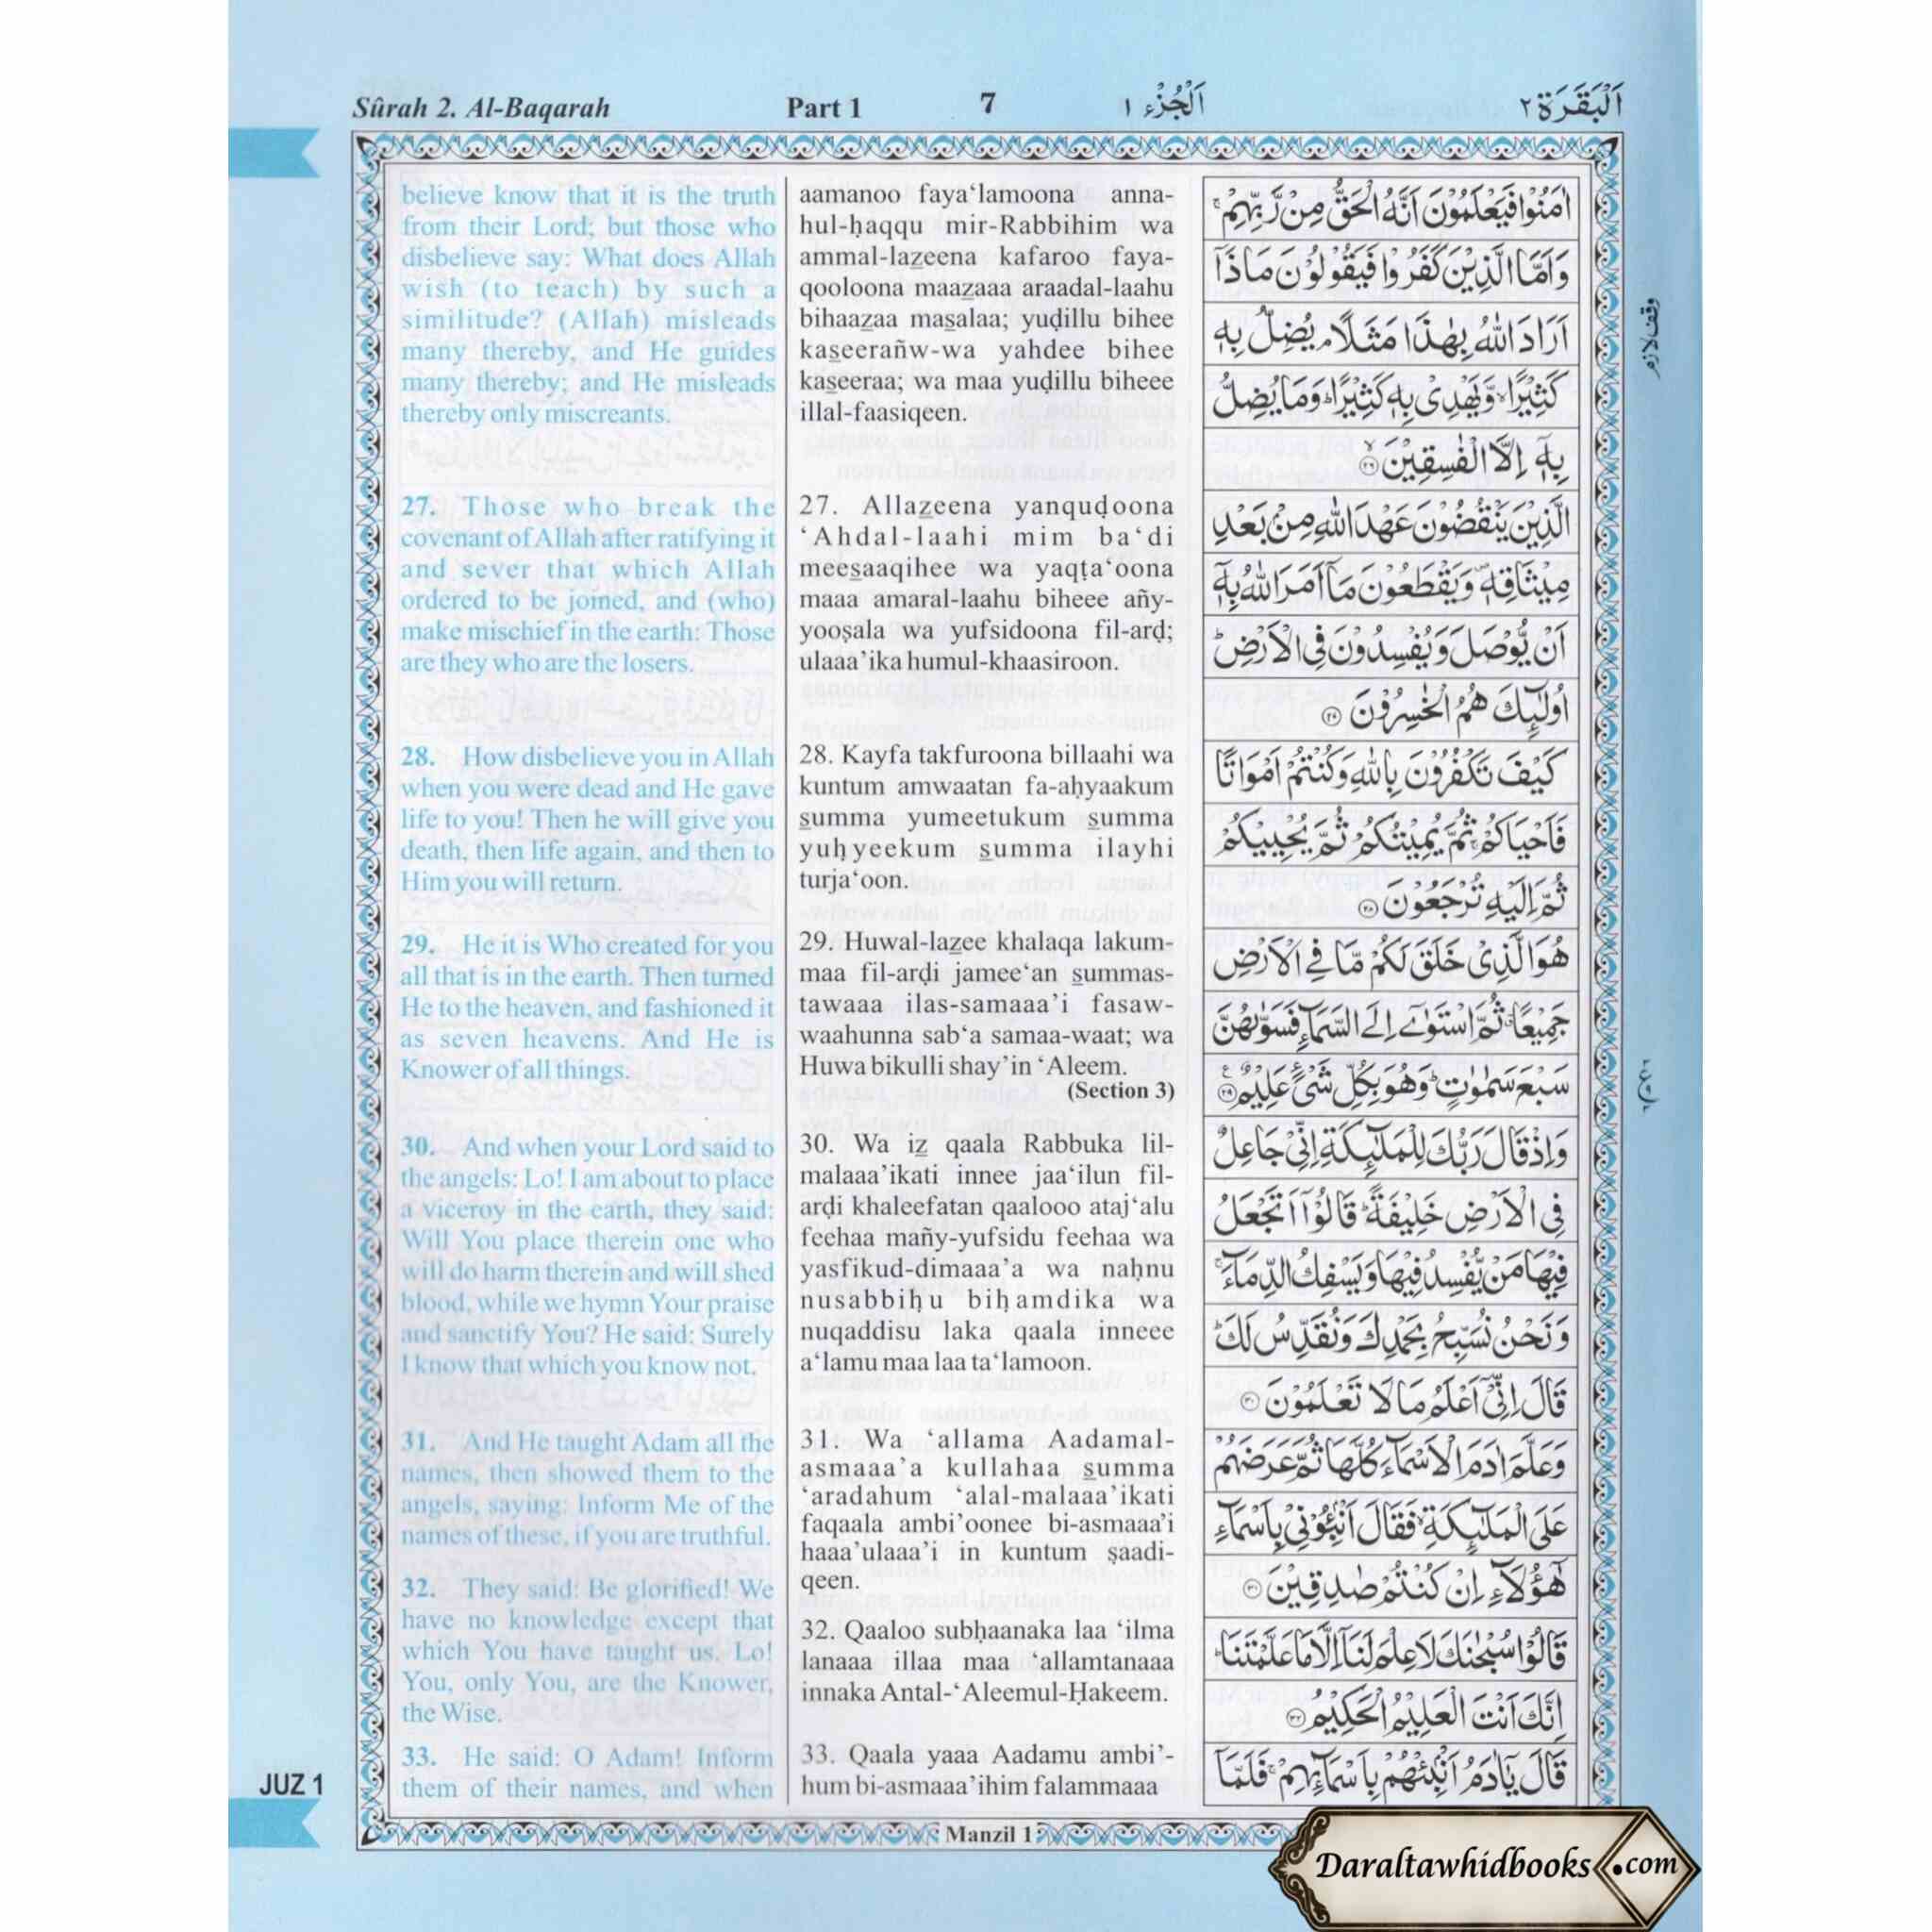 Sûrah 2. Al-Baqarah
Part 1
7
اَلْجُزْء ١
اَلْبَقَرَة ٢
believe know that it is the truth
from their Lord; but those who
disbelieve say: What does Allah
wish (to teach) by such a
similitude? (Allah) misleads
many thereby, and He guides
many thereby; and He misleads
thereby only miscreants.
27. Those who break the
covenant of Allah after ratifying it
and sever that which Allah
ordered to be joined, and (who)
make mischief in the earth: Those
are they who are the losers.
28. How disbelieve you in Allah
when you were dead and He gave
life to you! Then he will give you
death, then life again, and then to
Him you will return.
29. He it is Who created for you
all that is in the earth. Then turned
He to the heaven, and fashioned it
as seven heavens. And He is
Knower of all things.
30. And when your Lord said to
the angels: Lo! I am about to place
a viceroy in the earth, they said:
Will You place therein one who
will do harm therein and will shed
blood, while we hymn Your praise
and sanctify You? He said: Surely
I know that which you know not.
31. And He taught Adam all the
names, then showed them to the
angels, saying: Inform Me of the
names of these, if you are truthful.
32. They said: Be glorified! We
have no knowledge except that
which You have taught us. Lo!
You, only You, are the Knower,
the Wise.
33. He said: O Adam! Inform
them of their names, and when
aamanoo faya‘lamoona anna-
hul-ḥaqqu mir-Rabbihim wa
ammal-lazeena kafaroo faya-
qooloona maazaaa araadal-laahu
bihaazaa masalaa; yuḍillu bihee
kaseerañw-wa yahdee bihee
kaseeraa; wa maa yuḍillu biheee
illal-faasiqeen.
27. Allazeena yanquḍoona
‘Ahdal-laahi mim ba‘di
meesaaqihee wa yaqṭa‘oona
maaa amaral-laahu biheee añy-
yooṣala wa yufsidoona fil-arḍ;
ulaaa’ika humul-khaasiroon.
28. Kayfa takfuroona billaahi wa
kuntum amwaatan fa-aḥyaakum
summa yumeetukum summa
yuḥyeekum summa ilayhi
turja‘oon.
29. Huwal-lazee khalaqa lakum-
maa fil-arḍi jamee‘an summas-
tawaaa ilas-samaaa’i fasaw-
waahunna sab‘a samaa-waat; wa
Huwa bikulli shay’in ‘Aleem.
(Section 3)
30. Wa iz qaala Rabbuka lil-
malaaa’ikati innee jaa‘ilun fil-
arḍi khaleefatan qaalooo ataj‘alu
feehaa mañy-yufsidu feehaa wa
yasfikud-dimaaa’a wa naḥnu
nusabbiḥu biḥamdika wa
nuqaddisu laka qaala inneee
a‘lamu maa laa ta‘lamoon.
31. Wa ‘allama Aadamal-
asmaaa’a kullahaa summa
‘aradahum ‘alal-malaaa’ikati
faqaala ambi’oonee bi-asmaaa’i
haaa’ulaaa’i in kuntum ṣaadi-
qeen.
32. Qaaloo subḥaanaka laa ‘ilma
lanaaa illaa maa ‘allamtanaaa
innaka Antal-‘Aleemul-Ḥakeem.
33. Qaala yaaa Aadamu ambi’-
hum bi-asmaaa’ihim falammaaa
اٰمَنُوْا فَيَعْلَمُوْنَ اَنَّهُ الْحَقُّ مِنْ رَّبِّهِمْ ۚ
وَاَمَّا الَّذِيْنَ كَفَرُوْا فَيَقُوْلُوْنَ مَاذَآ
اَرَادَ اللّٰهُ بِهٰذَا مَثَلًا ۘ يُضِلُّ بِهٖ
كَثِيْرًا ۙ وَّيَهْدِىْ بِهٖ كَثِيْرًا ؕ وَمَا يُضِلُّ
بِهٖٓ اِلَّا الْفٰسِقِيْنَ ۙ ﴿۲۶﴾
الَّذِيْنَ يَنْقُضُوْنَ عَهْدَ اللّٰهِ مِنْۢ بَعْدِ
مِيْثَاقِهٖ ۪ وَيَقْطَعُوْنَ مَآ اَمَرَ اللّٰهُ بِهٖٓ
اَنْ يُّوْصَلَ وَيُفْسِدُوْنَ فِى الْاَرْضِ ؕ
اُولٰٓئِكَ هُمُ الْخٰسِرُوْنَ ﴿۲۷﴾
كَيْفَ تَكْفُرُوْنَ بِاللّٰهِ وَكُنْتُمْ اَمْوَاتًا
فَاَحْيَاكُمْ ۚ ثُمَّ يُمِيْتُكُمْ ثُمَّ يُحْيِيْكُمْ
ثُمَّ اِلَيْهِ تُرْجَعُوْنَ ﴿۲۸﴾
هُوَ الَّذِىْ خَلَقَ لَكُمْ مَّا فِى الْاَرْضِ
جَمِيْعًا ۗ ثُمَّ اسْتَوٰٓى اِلَى السَّمَآءِ فَسَوّٰىهُنَّ
سَبْعَ سَمٰوٰتٍ ؕ وَهُوَ بِكُلِّ شَىْءٍ عَلِيْمٌ ﴿۲۹﴾
وَاِذْ قَالَ رَبُّكَ لِلْمَلٰٓئِكَةِ اِنِّىْ جَاعِلٌ
فِى الْاَرْضِ خَلِيْفَةً ؕ قَالُوْٓا اَتَجْعَلُ
فِيْهَا مَنْ يُّفْسِدُ فِيْهَا وَيَسْفِكُ الدِّمَآءَ ۚ
وَنَحْنُ نُسَبِّحُ بِحَمْدِكَ وَنُقَدِّسُ لَكَ ؕ
قَالَ اِنِّىْٓ اَعْلَمُ مَا لَا تَعْلَمُوْنَ ﴿۳۰﴾
وَعَلَّمَ اٰدَمَ الْاَسْمَآءَ كُلَّهَا ثُمَّ عَرَضَهُمْ
عَلَى الْمَلٰٓئِكَةِ ۙ فَقَالَ اَنْۢبِـُٔوْنِىْ بِاَسْمَآءِ
هٰٓؤُلَآءِ اِنْ كُنْتُمْ صٰدِقِيْنَ ﴿۳۱﴾
قَالُوْا سُبْحٰنَكَ لَا عِلْمَ لَنَآ اِلَّا مَا عَلَّمْتَنَا ؕ
اِنَّكَ اَنْتَ الْعَلِيْمُ الْحَكِيْمُ ﴿۳۲﴾
قَالَ يٰٓاٰدَمُ اَنْۢبِئْهُمْ بِاَسْمَآئِهِمْ ۚ فَلَمَّآ
وقف لازم
JUZ 1
Manzil 1
Daraltawhidbooks .com